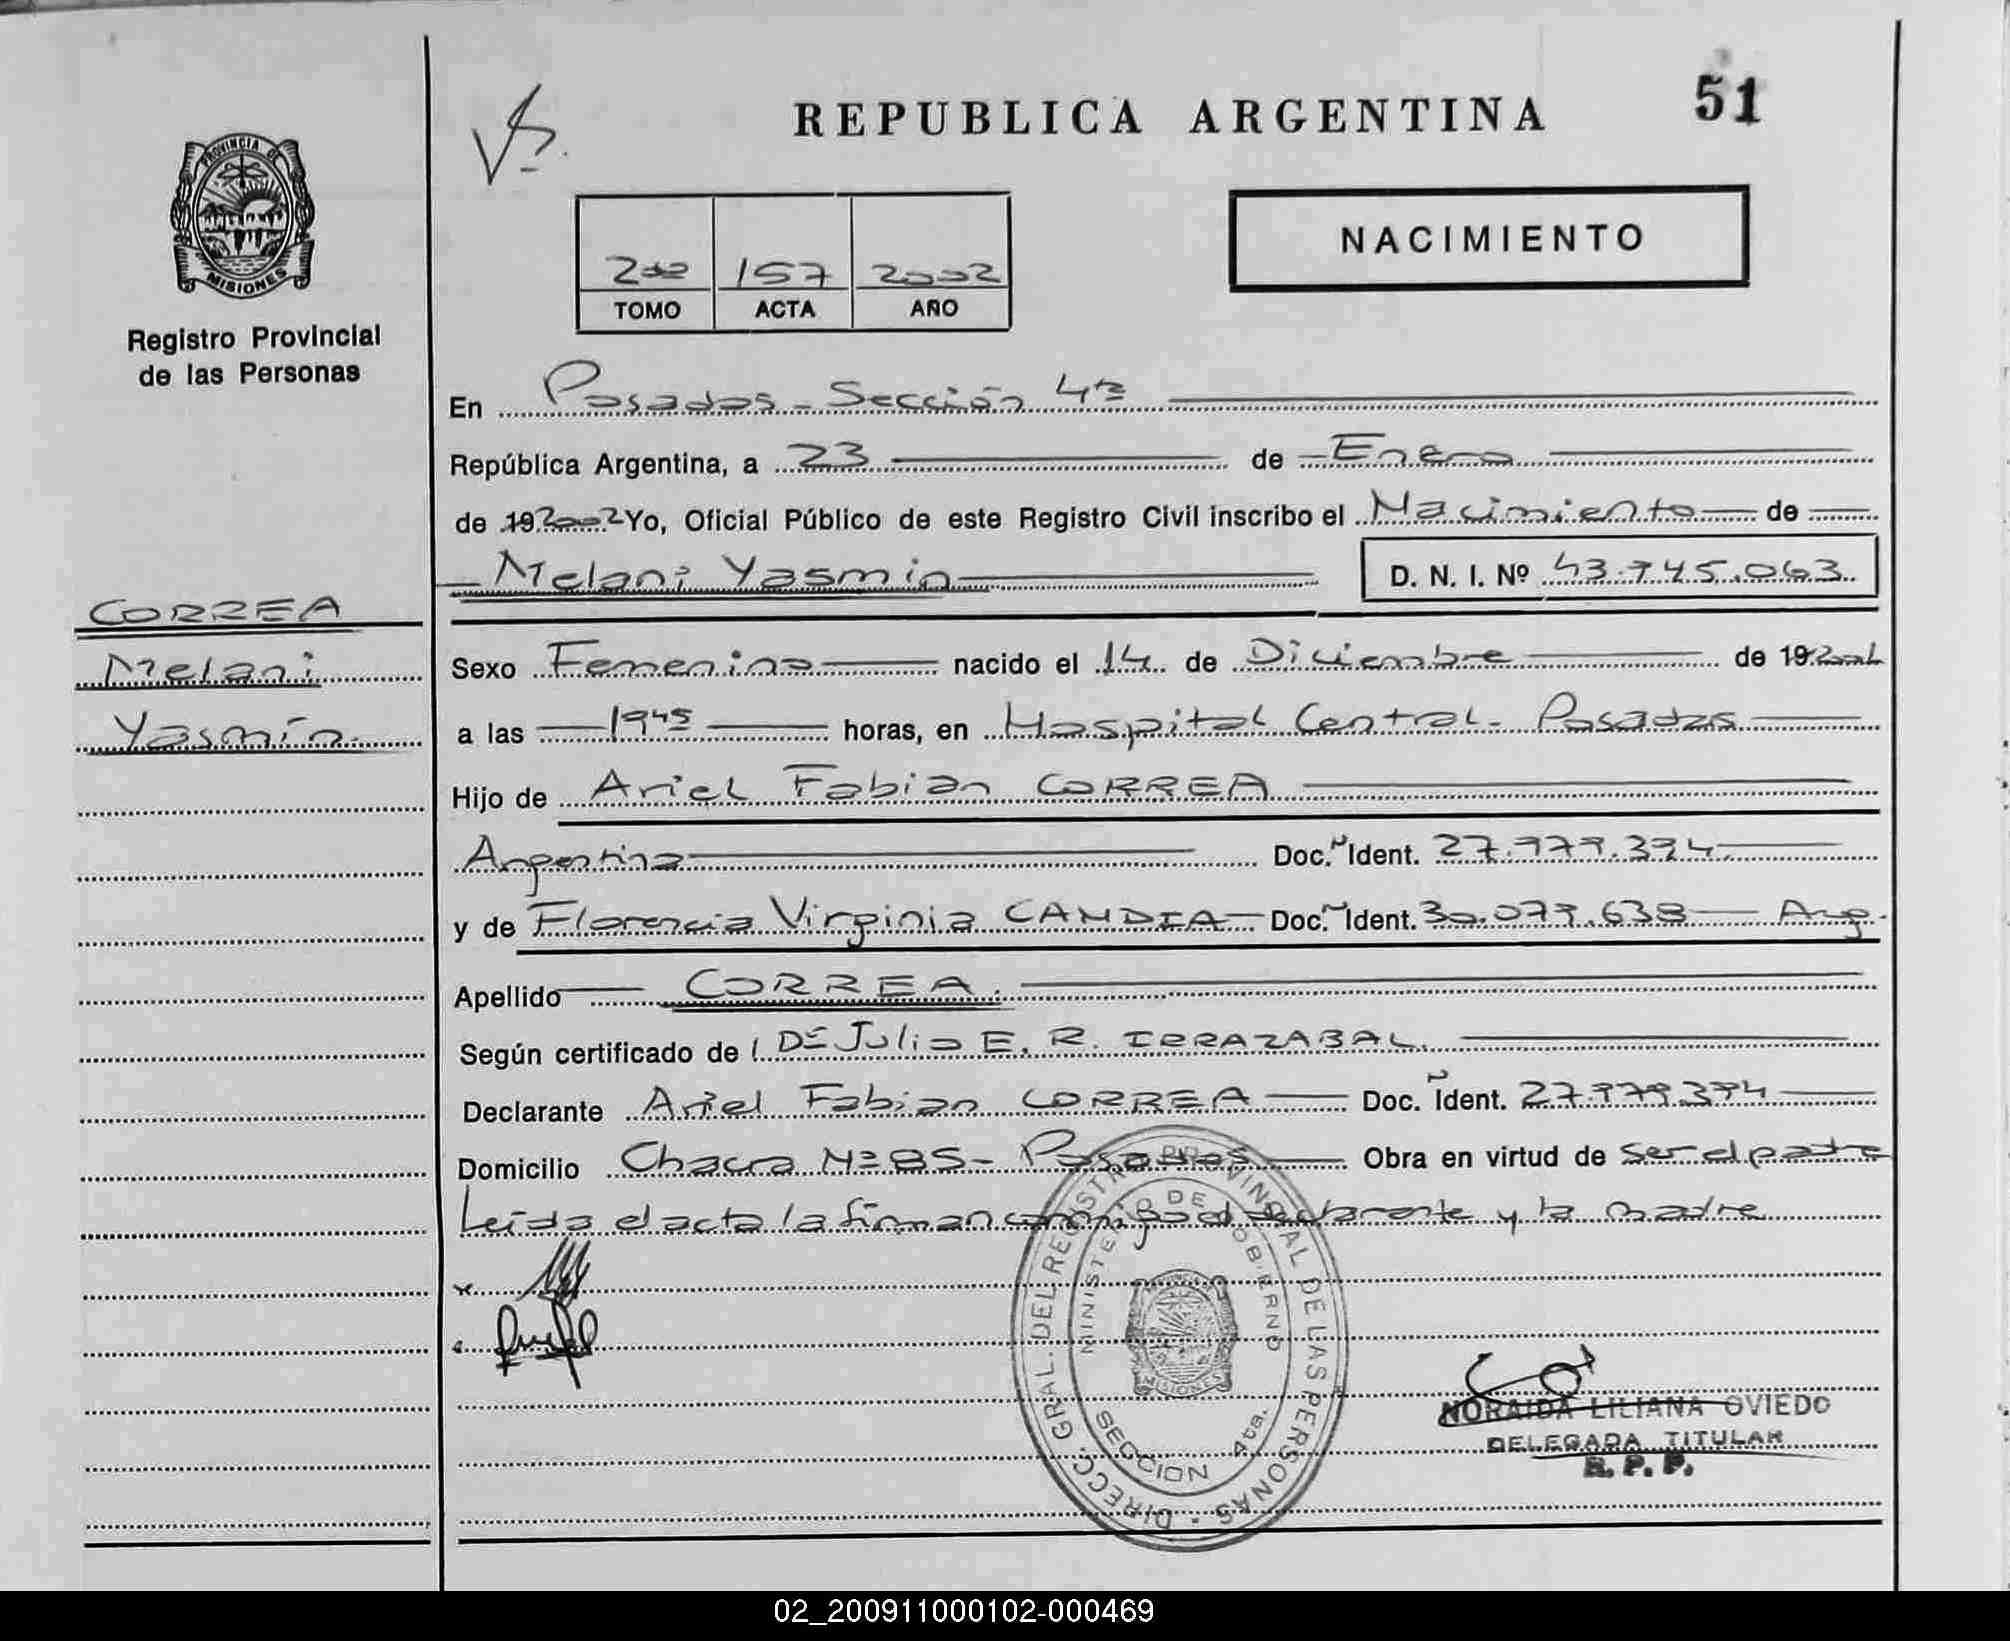 REPUBLICA ARGENTINA
51
PROVINCIA DE
MISIONES
Registro Provincial
de las Personas
NACIMIENTO
2do 157 2002
TOMO ACTA AÑO
En Posadas - Sección 4ta
República Argentina, a 23 de Enero
de 19 2002 Yo, Oficial Público de este Registro Civil inscribo el Nacimiento de
Melani Yasmin D. N. I. Nº 43.745.063
CORREA
Melani
Yasmín
Sexo Femenino nacido el 14 de Diciembre de 19 2001
a las 19 45 horas, en Hospital Central - Posadas
Hijo de Ariel Fabian CORREA
Argentina Doc. Ident. 27.979.394
y de Florencia Virginia CANDIA Doc. Ident. 30.079.638 Arg.
Apellido CORREA.
Según certificado de Dr Julio E. R. IRRAZABAL.
Declarante Ariel Fabian CORREA Doc. Ident. 27.979.394
Domicilio Chacra Nº 85 - Posadas Obra en virtud de ser el padre
Leída el acta la firman conmigo el declarante y la madre
DIRECC. GRAL. DEL REGISTRO PROVINCIAL DE LAS PERSONAS
MINISTERIO DE GOBIERNO
MISIONES
SECCION 4ta.
NORAIDA LILIANA OVIEDO
DELEGADA TITULAR
R. P. P.
02_200911000102-000469